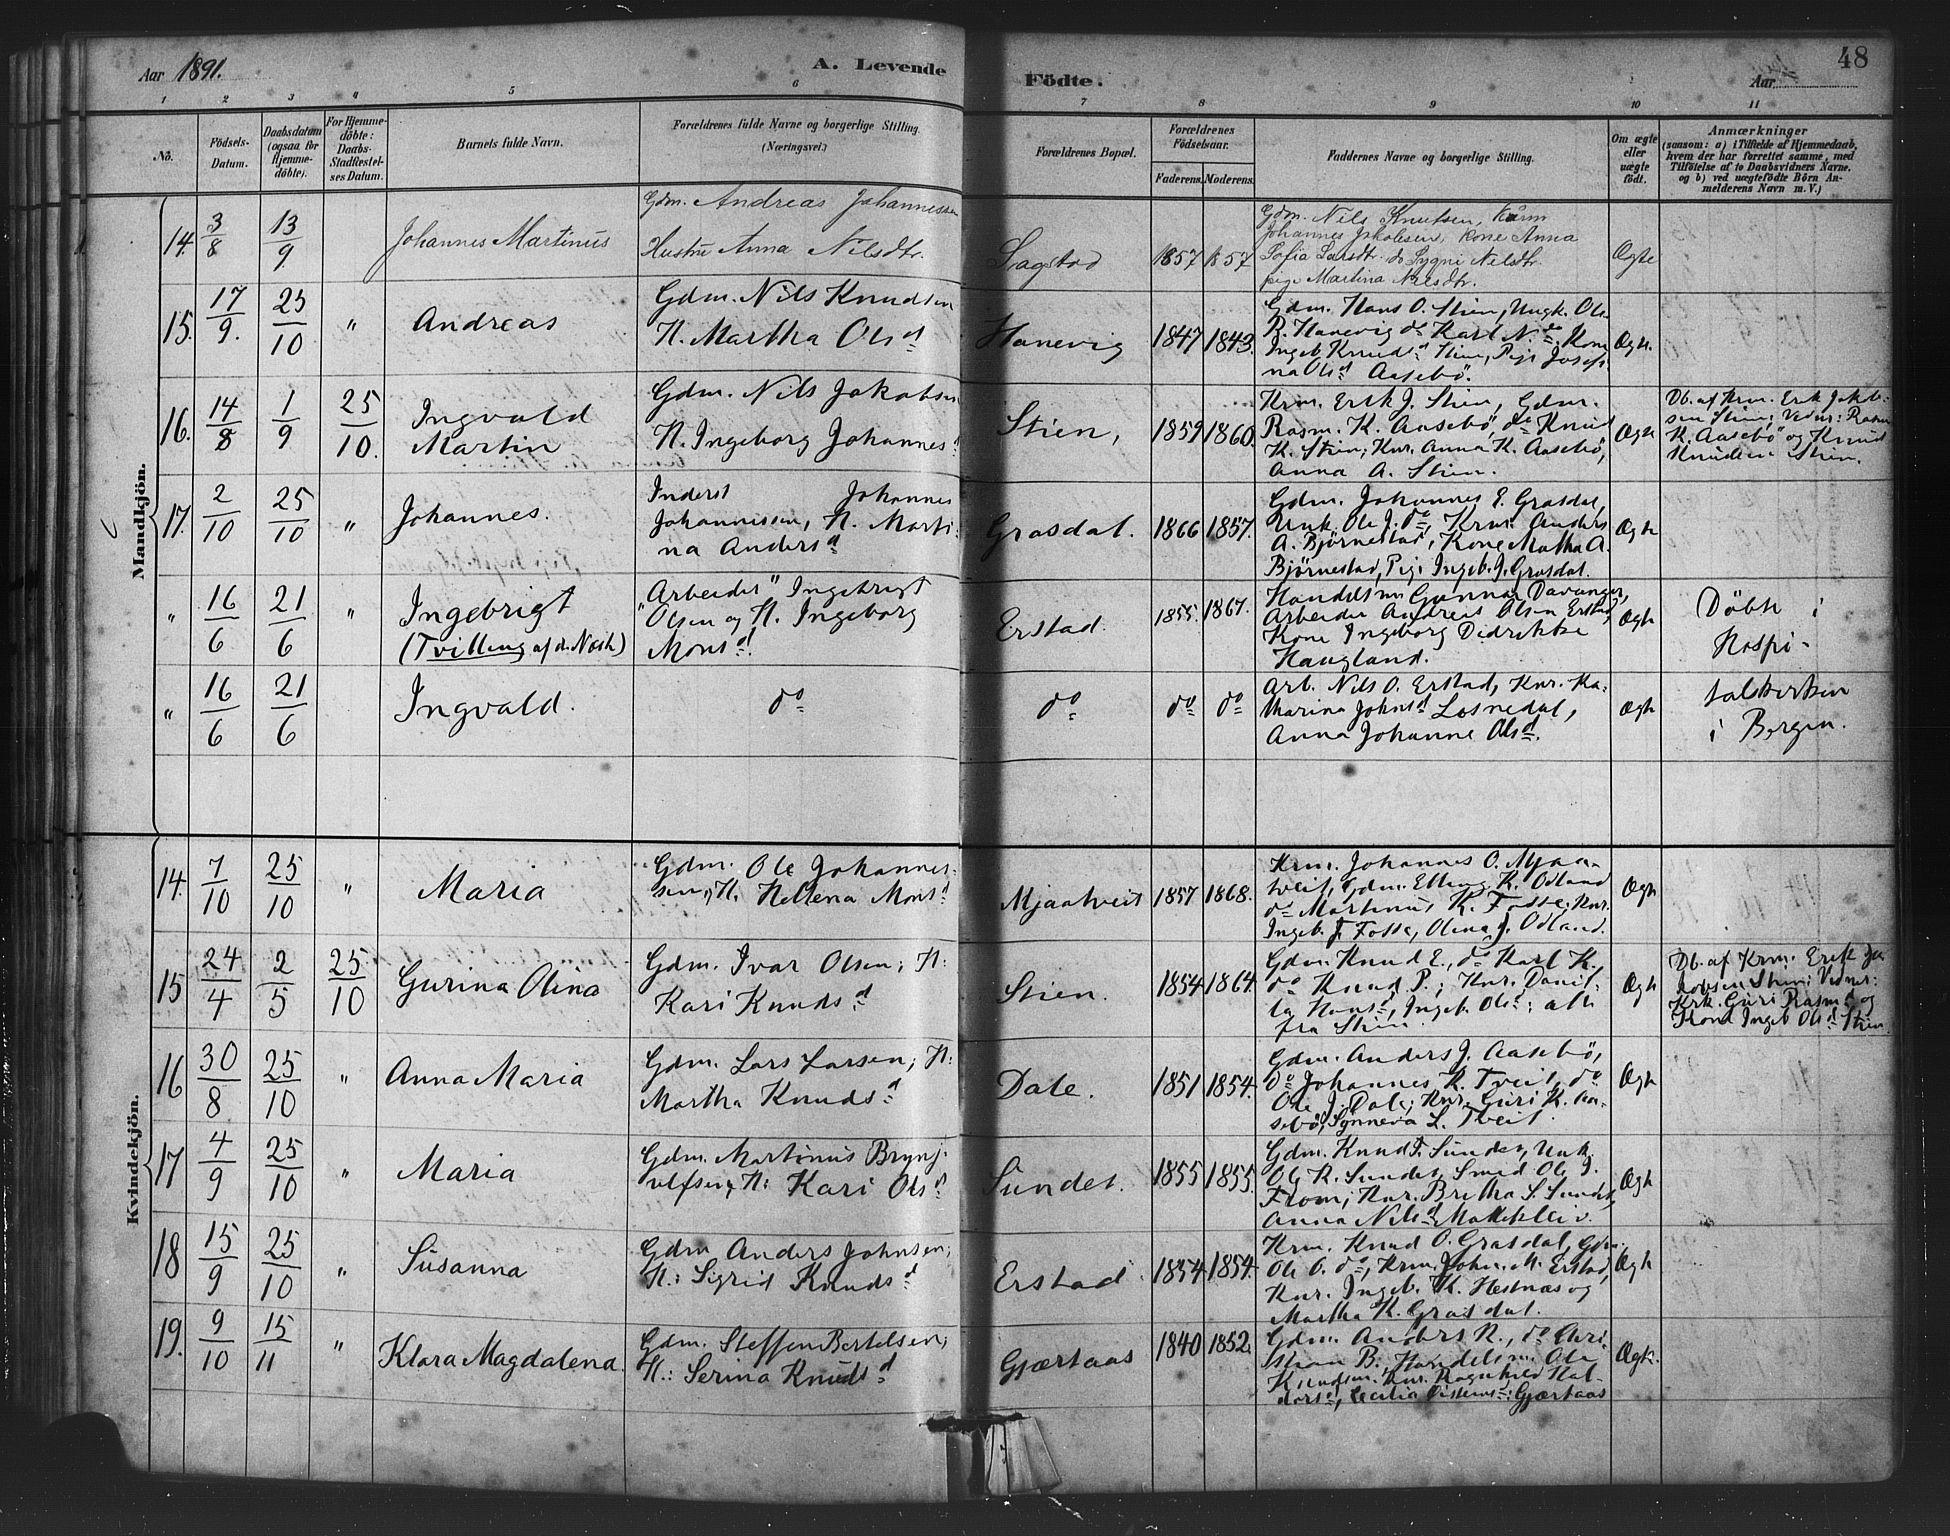 Aar 1891.
A. Levende
Födte.
Aar
48
1 2 3 4 5 6 7 8 9 10 11
No.
Födsels-Datum.
Daabsdatum (ogsaa for Hjemme-döbte).
For Hjemme-döbte: Daabs-Stadfæstel-ses Datum.
Barnets fulde Navn.
Forældrenes fulde Navne og borgerlige Stilling.
(Næringsvei.)
Forældrenes Bopæl.
Forældrenes Födselsaar.
Faderens. Moderens.
Faddernes Navne og borgerlige Stilling.
Om ægte eller uægte födt.
Anmærkninger
(saasom: a) i Tilfælde af Hjemmedaab, hvem der har forrettet samme, med Tilföielse af to Daabsvidners Navne. og b) ved uægtefödte Börn An-melderens Navn m. V.)
Mandkjön.
14. 3/8 13/9 Johannes Martinus
Gdm. Andreas Johannessen
Hustru Anna Nilsdtr.
Sagstad 1857 1857
Gdm. Nils Knutsen, Karm
Johannes Jakobsen, Kone Anna
Sofia Larsdtr. do Sygni Nilsdtr.
pige Martina Nilsdtr.
Ægte
15. 17/9. 25/10 " Andreas
Gdm. Nils Knudsen
H. Martha Olsd
Hanevig 1847 1843.
Gdm. Hans O. Stien, Ungk. Ole
R. Hanevig do Karl N. do, Kone
Ingeb. Knudsd Stien, Pige Josefi-
na Olsd Aasebö.
Ægte.
16. 14/8 1/9 25/10. Ingvald
Martin
Gdm. Nils Jakobsen
H. Ingeborg Johannesd
Stien, 1859 1860.
Krm. Erik J. Stien, Gdm.
Rasm. K. Aasebö, do Knud
K. Stien; Knr. Anna K. Aasebö,
Anna A. Stien.
Ægte
Db. af Krm. Erik Jakob-
sen Stien; Vidner: Rasm
K. Aasebö og Knud
Knudsen Stien.
17. 2/10 25/10 " Johannes.
Inderst Johannes
Johannessen, H. Marti-
na Andersd
Grasdal. 1866 1857.
Gdm. Johannes E. Grasdal,
Unk. Ole J. do, Krm. Anders
A. Björnestad, Kone Martha A.
Björnestad, Pige Ingeb. J. Grasdal.
Ægte
" 16/6 21/6 " Ingebrigt
(Tvilling af d. Næste)
"Arbeider" Ingebrigt
Olsen og H. Ingeborg
Monsd.
Erstad. 1855. 1867.
Handelsm Gunnar Davanger,
Arbeider Andreas Olsen Erstad,
Kone Ingeborg Didrikke
Haugland.
Ægte
Döbte i
Hospi-
" 16/6 21/6 Ingvald.
do
do do do
Arb. Nils O. Erstad, Knr. Ka-
tharina Johnsd Losnedal,
Anna Johanne Olsd.
Ægte
talskirken
i Bergen.
Kvindekjön.
14. 7/10 25/10 " Maria
Gdm. Ole Johannes-
sen, H. Hellena Monsd
Mjaatveit 1857 1868.
Krm. Johannes O. Mjaa-
tveit, Gdm. Elling K. Odland
do Martinus K. Fosse; Knr.
Ingeb. J. Fosse, Olina J. Odland.
Ægte
15 24/4 2/5 25/10 Gurina Olina
Gdm. Ivar Olsen; H:
Kari Knudsd
Stien. 1854 1864.
Gdm. Knud E., do Karl K.
do Knud P.; Knr. Danil-
la Hansd, Ingeb. Olsd: alle
fra Stien.
Ægte
Db. af Krm. Erik Ja-
kobsen Stien; Vidner:
Krk. Guri Rasmd og
Kone Ingeb Olsd Stien.
16 30/8 25/10 " Anna Maria
Gdm. Lars Larsen; H:
Martha Knudsd
Dale. 1851 1854.
Gdm. Anders J. Aasebö,
do Johannes K. Tveit, do
Ole J. Dale; Knr. Guri K. Aa-
sebö, Synneva L. Tveit.
Ægte
17 4/9 25/10 " Maria
Gdm. Martinus Brynj-
ulfsen, H: Kari Olsd
Sundet. 1855 1855.
Gdm. Knud T. Sundet, Unk.
Ole K. Sundet, Smed Ole J.
From; Knr. Britha S. Sundet,
Anna Nilsd Mattekleiv.
Ægte
18 15/9 25/10 " Susanna
Gdm Anders Johnsen;
H: Sigrid Knudsd
Erstad 1854 1854.
Krm. Knud O. Grasdal, Gdm.
Ole O. do, Krm. John. M. Erstad,
Knr. Ingeb. K. Hestnæs og
Martha K. Grasdal.
Ægte
19. 9/10 15/11 " Klara Magdalena.
Gdm. Steffen Bertelsen;
H.: Serina Knudsd
Gjærtaas 1840 1852.
Gdm. Anders N., do Chri-
stian B., Handelsm. Ole
Knudsen, Knr. Ragnhild Hal-
dorsd, Cecilia Gjærtaas
Ægte.